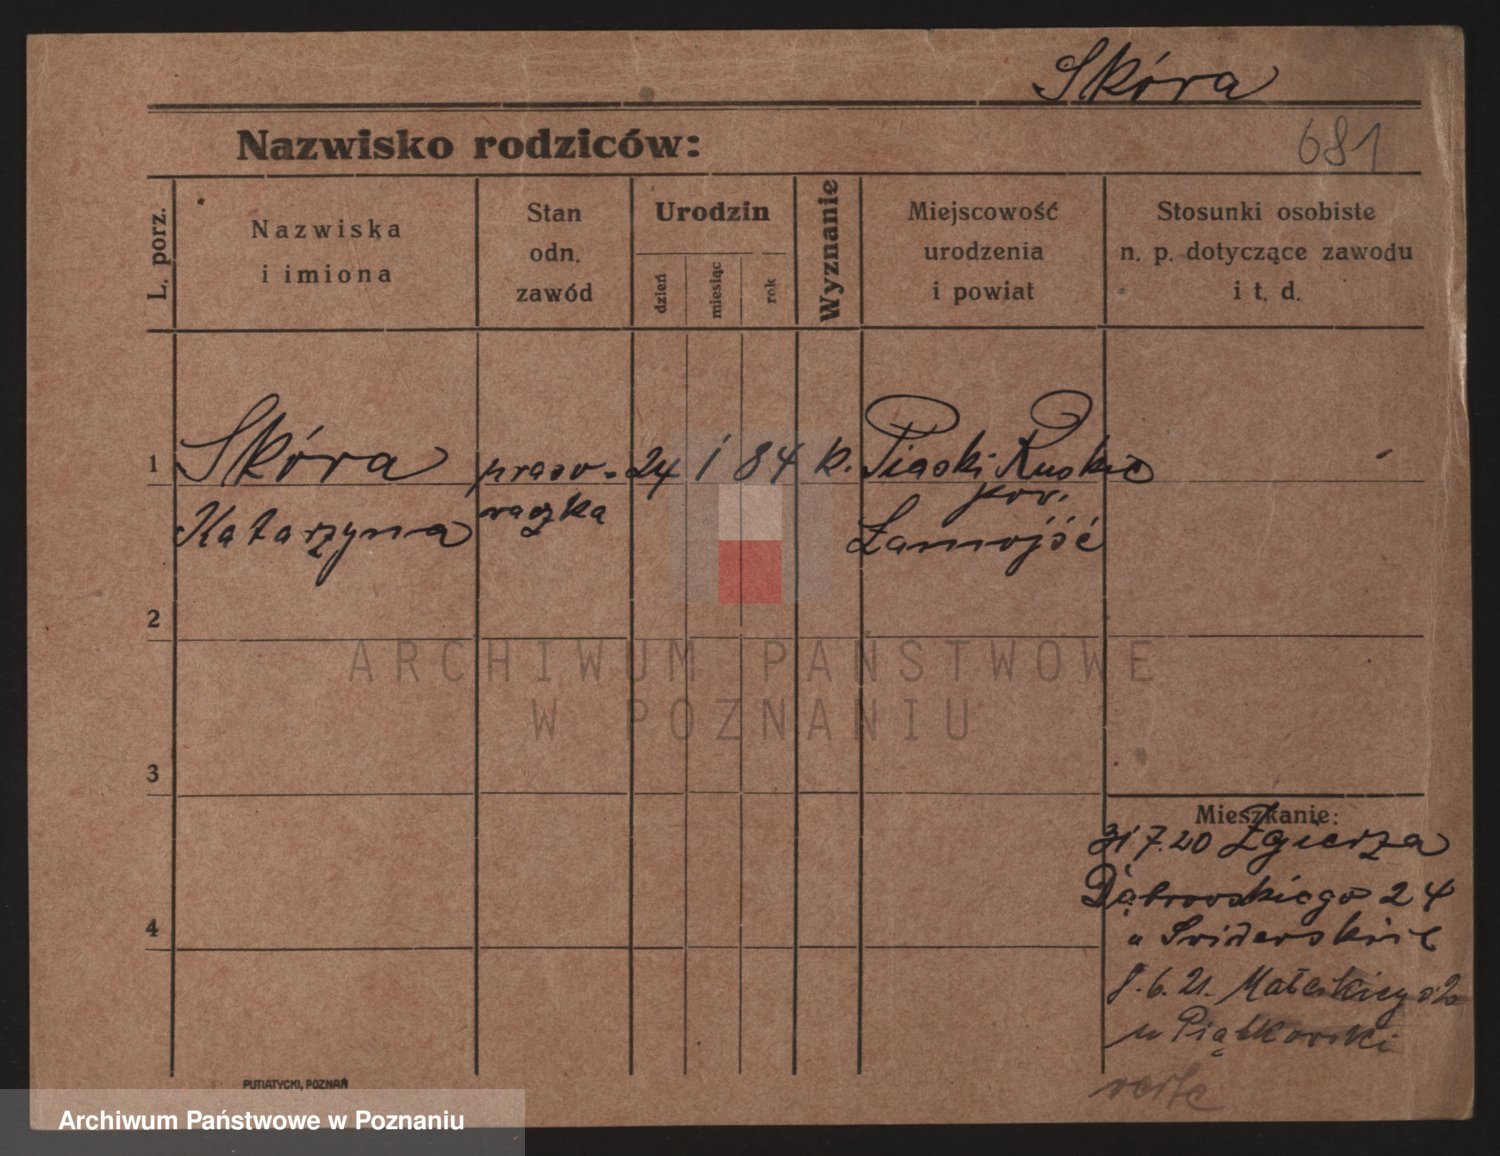 Skóra
Nazwisko rodziców:
681
L. porz.
Nazwiska
i imiona
Stan
odn.
zawód
Urodzin
dzień
miesiąc
rok
Wyznanie
Miejscowość
urodzenia
i powiat
Stosunki osobiste
n. p. dotyczące zawodu
i t. d.
1
Skóra
Katarzyna
praso-
waczka
24 1 84 k.
Piaski Ruskie
pow.
Zamojść
2
3
4
Mieszkanie:
31 7.20 Zgierza
Dąbrowskiego 24
u Swiderskiie
8.6.21. Małeckiego
u Piątkowski
verte
PUTIATYCKI, POZNAŃ
ARCHIWUM PAŃSTWOWE
W POZNANIU
Archiwum Państwowe w Poznaniu